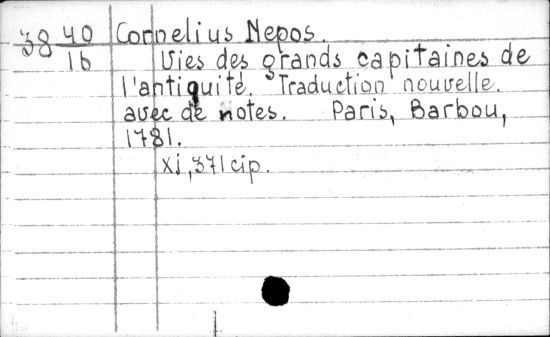 38 40/16 Cornelius Nepos.
Vies des grands capitaines de
l'antiquité. Traduction nouvelle.
avec de notes. Paris, Barbou,
1781.
xi, 371 cip.